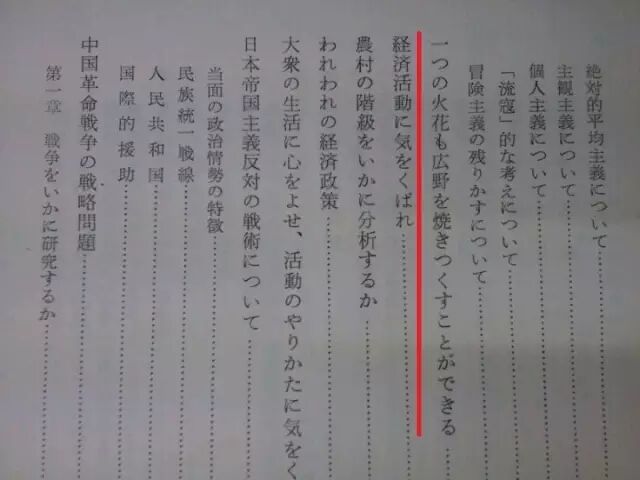 絶対的平均主義について
主観主義について
個人主義について
「流寇」的な考えについて
冒険主義の残りかすについて
一つの火花も広野を焼きつくすことができる
経済活動に気をくばれ
農村の階級をいかに分析するか
われわれの経済政策
大衆の生活に心をよせ、活動のやりかたに気をく
日本帝国主義反対の戦術について
当面の政治情勢の特徴
民族統一戦線
人民共和国
国際的援助
中国革命戦争の戦略問題
第一章 戦争をいかに研究するか